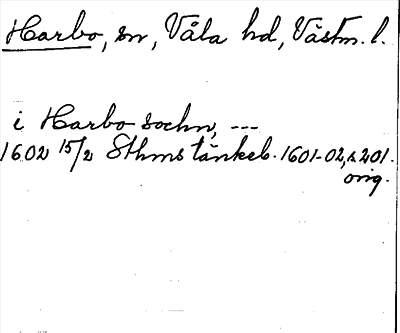 Harbo, sn, Våla hd, Västm. l.
i Harbo sochn, ---
1602 15/2 Sthms tänkeb. 1601-02, s. 201.
orig.